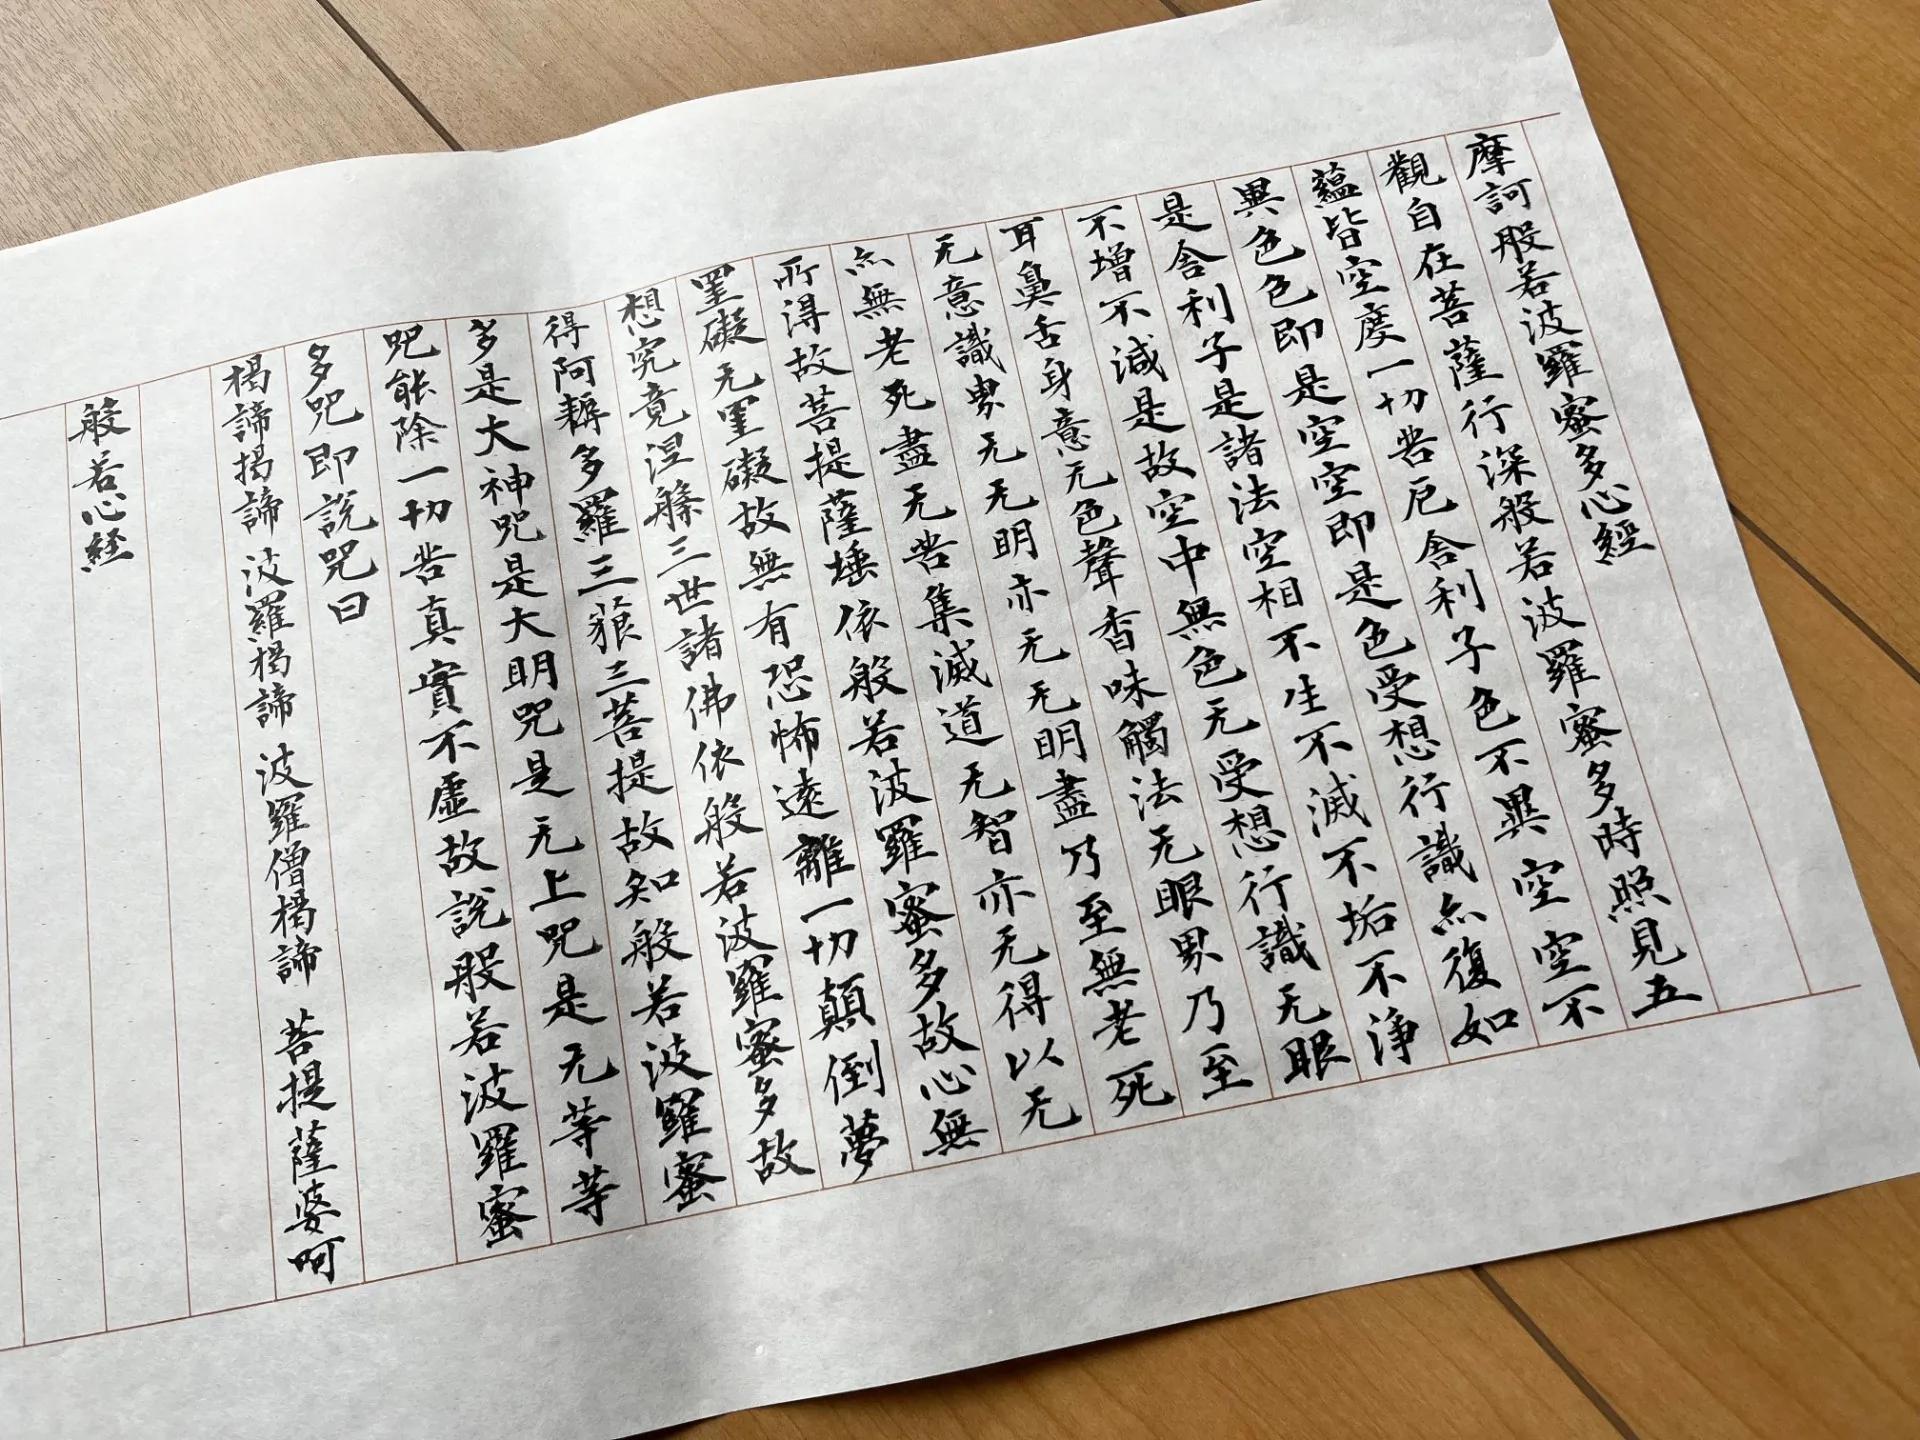 摩訶般若波羅蜜多心經
觀自在菩薩行深般若波羅蜜多時照見五
蘊皆空度一切苦厄舍利子色不異空空不
異色色即是空空即是色受想行識亦復如
是舍利子是諸法空相不生不滅不垢不淨
不增不減是故空中無色无受想行識无眼
耳鼻舌身意无色聲香味觸法无眼界乃至
无意識界无无明亦无无明盡乃至無老死
亦無老死盡无苦集滅道无智亦无得以无
所得故菩提薩埵依般若波羅蜜多故心無
罣礙无罣礙故無有恐怖遠離一切顛倒夢
想究竟涅槃三世諸佛依般若波羅蜜多故
得阿耨多羅三藐三菩提故知般若波羅蜜
多是大神咒是大明咒是无上咒是无等等
咒能除一切苦真實不虛故說般若波羅蜜
多咒即說咒曰
揭諦揭諦 波羅揭諦 波羅僧揭諦 菩提薩婆呵
般若心経